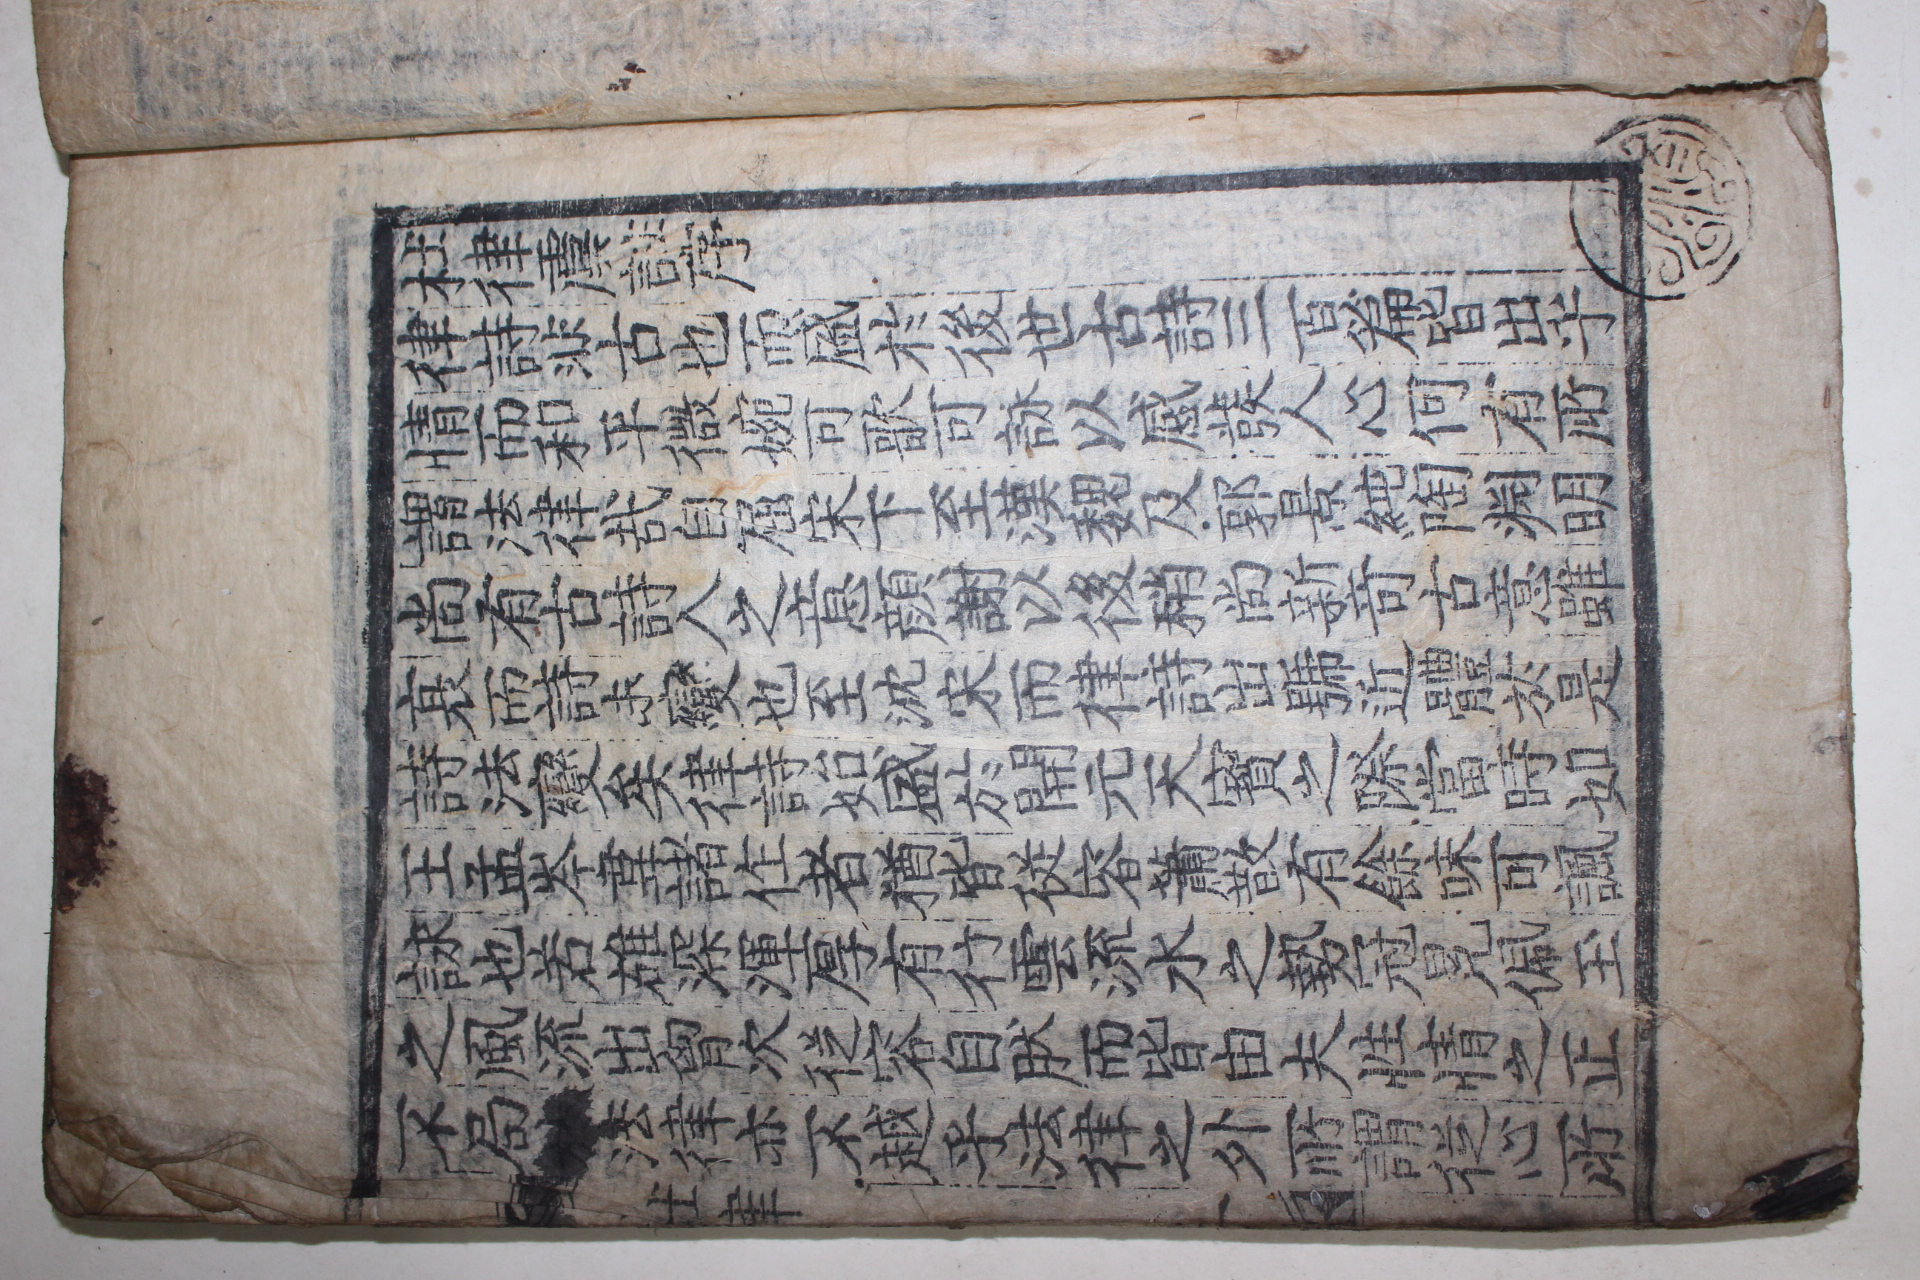 杜律虞註序
律詩非古也而盛於後世古詩三百篇皆出乎
情而和平微婉可歌可詠以感發人心何有所
謂法律哉自屈宋下至漢魏及郭景純陶淵明
尚有古詩人之意顔謝以後稍尚新奇古意雖
衰而詩未變也至沈宋而律詩出號近體於是
詩法變矣律詩始盛於開元天寶之際當時如
王孟岑韋諸作者猶皆從容蕭散有餘味可諷
詠也若雄深渾厚有行雲流水之勢冠冕佩玉
之風流出胷次從容自然而皆由夫性情之正
不局法律亦不越乎法律之外所謂從心所